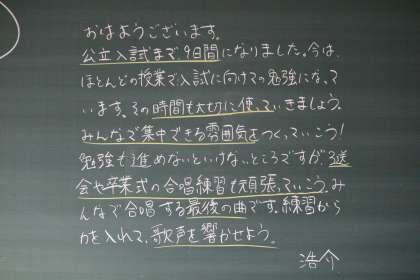 おはようございます。
公立入試まで9日間になりました。今は、
ほとんどの授業で入試に向けての勉強になって
います。その時間も大切に使っていきましょう。
みんなで集中できる雰囲気をつくっていこう!
勉強も進めないといけないところですが3送
会や卒業式の合唱練習も頑張っていこう。み
んなで合唱する最後の曲です。練習から
力を入れて、歌声を響かせよう。
浩介